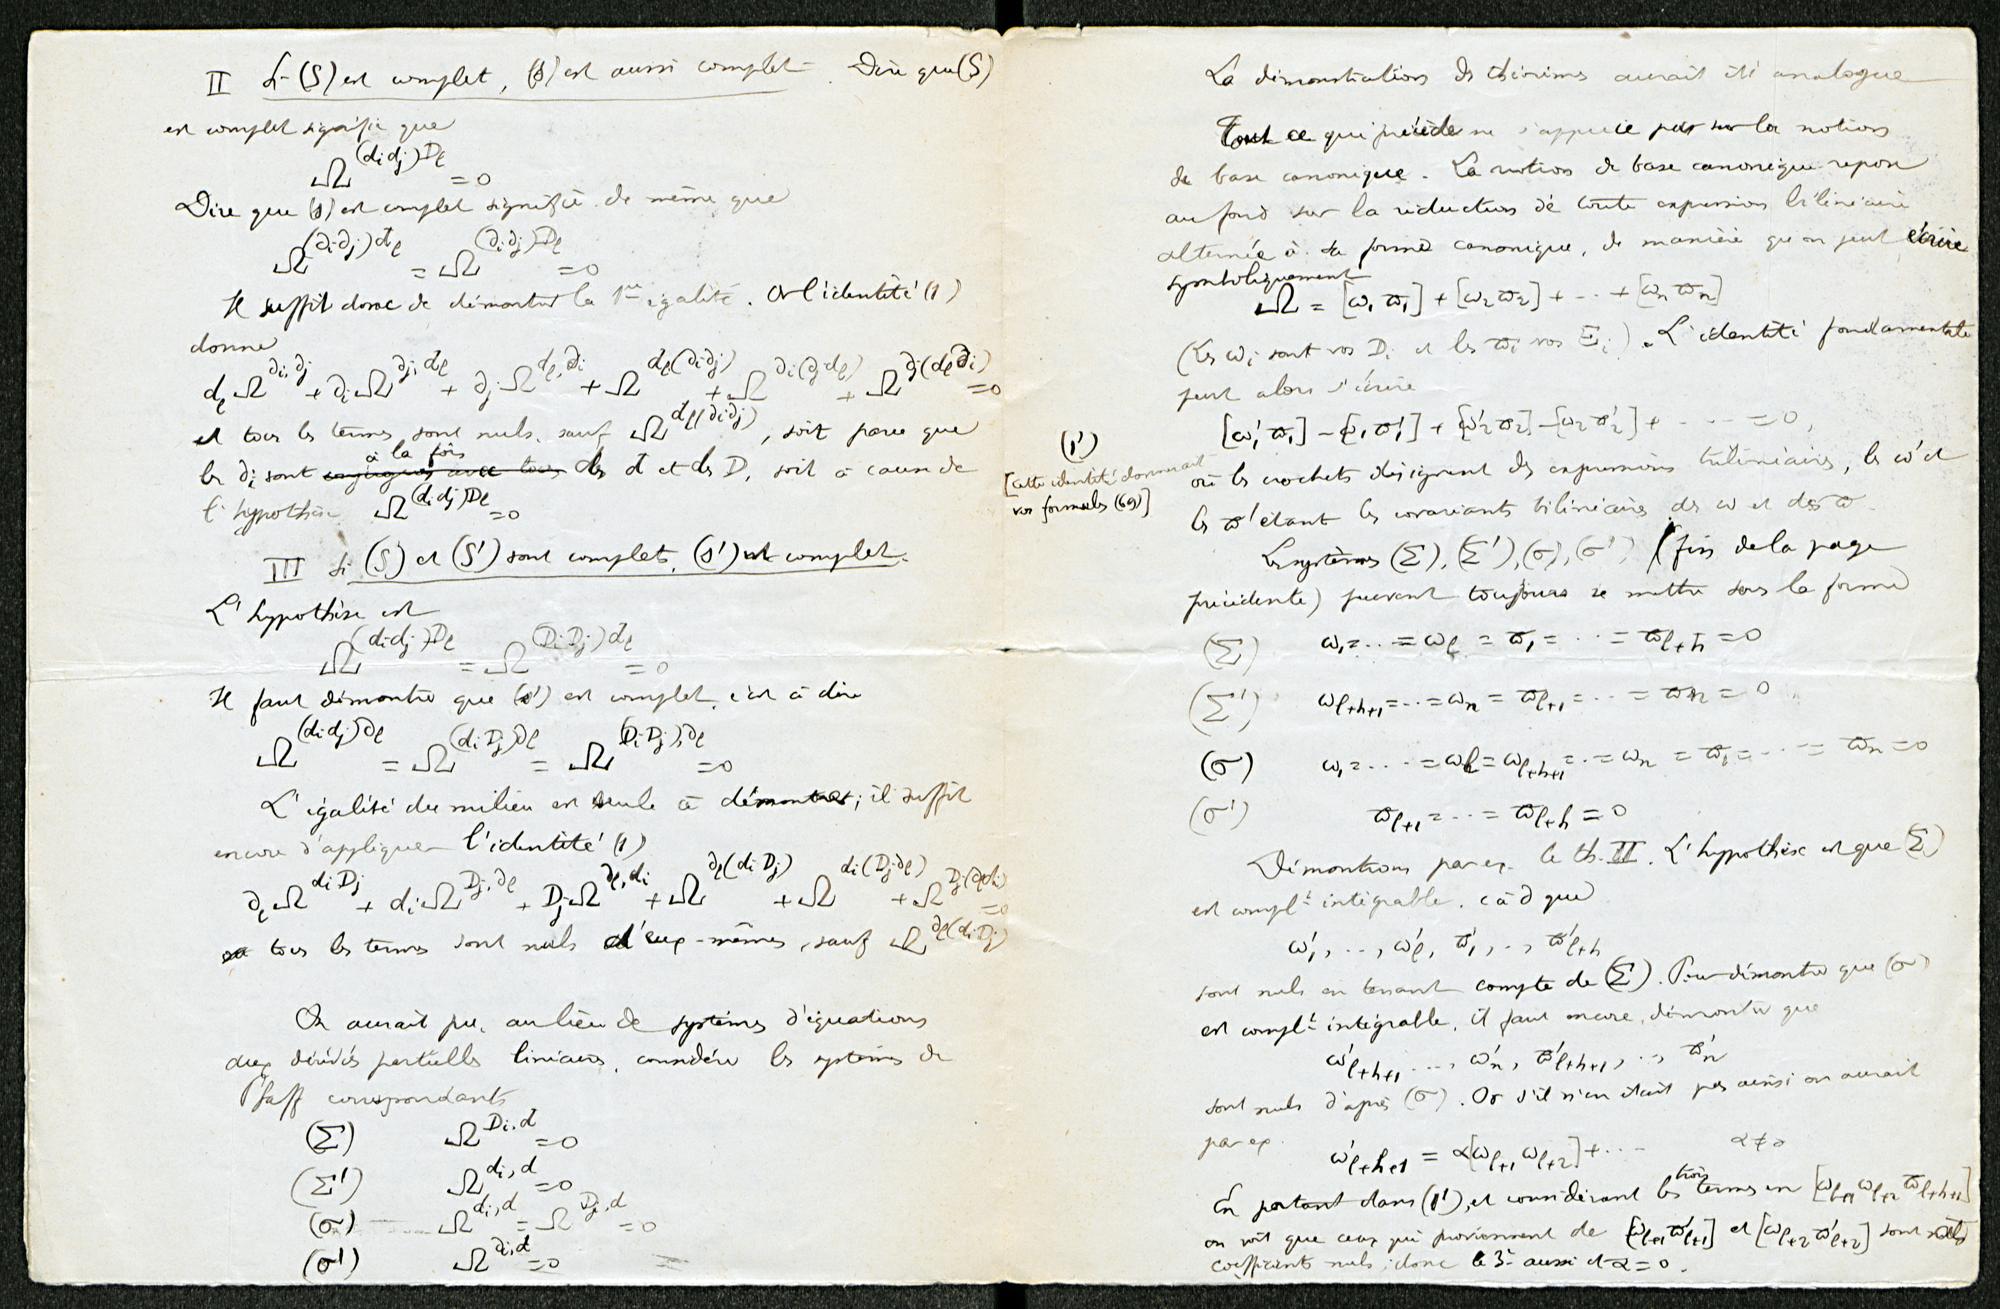 II Si (S) est complet, (s) est aussi complet. Dire que (S)
est complet signifie que
Ω^{(d_i d_j) D_l} = 0
Dire que (s) est complet signifie de même que
Ω^{(∂_i ∂_j) d_l} = Ω^{(∂_i ∂_j) D_l} = 0
Il suffit donc de démontrer la 1re égalité. Or l'identité (1)
donne
d_l Ω^{∂_i, ∂_j} + ∂_i Ω^{∂_j, d_l} + ∂_j Ω^{d_l, ∂_i} + Ω^{d_l (∂_i ∂_j)} + Ω^{∂_i (∂_j d_l)} + Ω^{∂_j (d_l ∂_i)} = 0
et tous les termes sont nuls, sauf Ω^{d_l (∂_i ∂_j)}, soit parce que
à la fois
les ∂_i sont conjugués avec tous des d et des D, soit à cause de
l'hypothèse Ω^{(d_i d_j) D_l} = 0
III Si (S) et (S') sont complets, (s') est complet.
L'hypothèse est
Ω^{(d_i d_j) D_l} = Ω^{(D_i D_j) d_l} = 0
Il faut démontrer que (s') est complet, c'est à dire
Ω^{(d_i d_j) ∂_l} = Ω^{(d_i D_j) ∂_l} = Ω^{(D_i D_j), ∂_l} = 0
L'égalité du milieu est seule à démontrer; il suffit
encore d'appliquer l'identité (1)
∂_l Ω^{d_i D_j} + d_i Ω^{D_j, ∂_l} + D_j Ω^{∂_l, d_i} + Ω^{∂_l (d_i D_j)} + Ω^{d_i (D_j ∂_l)} + Ω^{D_j (∂_l d_i)} = 0
où tous les termes sont nuls d'eux-mêmes, sauf Ω^{∂_l (d_i D_j)}
On aurait pu, au lieu de systèmes d'équations
aux dérivées partielles linéaires, considérer les systèmes de
Pfaff correspondants
(Σ) Ω^{D_i, d} = 0
(Σ') Ω^{d_i, d} = 0
(σ) Ω^{d_i, d} = Ω^{D_i, d} = 0
(σ') Ω^{∂_i, d} = 0
La démonstration des théorèmes aurait été analogue
Tout ce qui précède ne s'appuie pas sur la notion
de base canonique. La notion de base canonique repose
au fond sur la réduction de toute expression bilinéaire
alternée à sa forme canonique, de manière qu'on peut écrire
symboliquement
Ω = [ω_1 ϖ_1] + [ω_2 ϖ_2] + ... + [ω_n ϖ_n]
(Les ω_i sont vos D_i et les ϖ_i vos Ξ_i). L'identité fondamentale
peut alors s'écrire
(1') [ω'_1 ϖ_1] − [ω_1 ϖ'_1] + [ω'_2 ϖ_2] − [ω_2 ϖ'_2] + ..... = 0,
[cette identité donnerait
vos formules (69)]
où les crochets désignent des expressions trilinéaires, les ω' et
les ϖ' étant les covariants bilinéaires des ω et des ϖ.
Les systèmes (Σ), (Σ'), (σ), (σ') (fin de la page
précédente) peuvent toujours se mettre sous la forme
(Σ) ω_1 = ... = ω_l = ϖ_1 = ... = ϖ_{l+h} = 0
(Σ') ω_{l+h+1} = ... = ω_n = ϖ_{l+1} = ... = ϖ_n = 0
(σ) ω_1 = .... = ω_l = ω_{l+h+1} = ... = ω_n = ϖ_1 = .... = ϖ_n = 0
(σ') ϖ_{l+1} = ... = ϖ_{l+h} = 0
Démontrons par ex. le th. II. L'hypothèse est que (Σ)
est complt intégrable, c à d que
ω'_1, ..., ω'_l, ϖ'_1, .., ϖ'_{l+h}
sont nuls en tenant compte de (Σ). Pour démontrer que (σ)
est complt intégrable, il faut encore démontrer que
ω'_{l+h+1} ..., ω'_n, ϖ'_{l+h+1}, .., ϖ'_n
sont nuls d'après (σ). Or s'il n'en était pas ainsi on aurait
par ex. ω'_{l+h+1} = α[ω_{l+1} ω_{l+2}] + ... α ≠ 0
trois
En portant dans (1'), et considérant les termes en [ω_{l+1} ω_{l+2} ϖ_{l+h+1}]
on voit que ceux qui proviennent de [ω_{l+1} ϖ'_{l+1}] et [ω_{l+2} ϖ'_{l+2}] sont
coefficients nuls; donc le 3e aussi et α = 0.